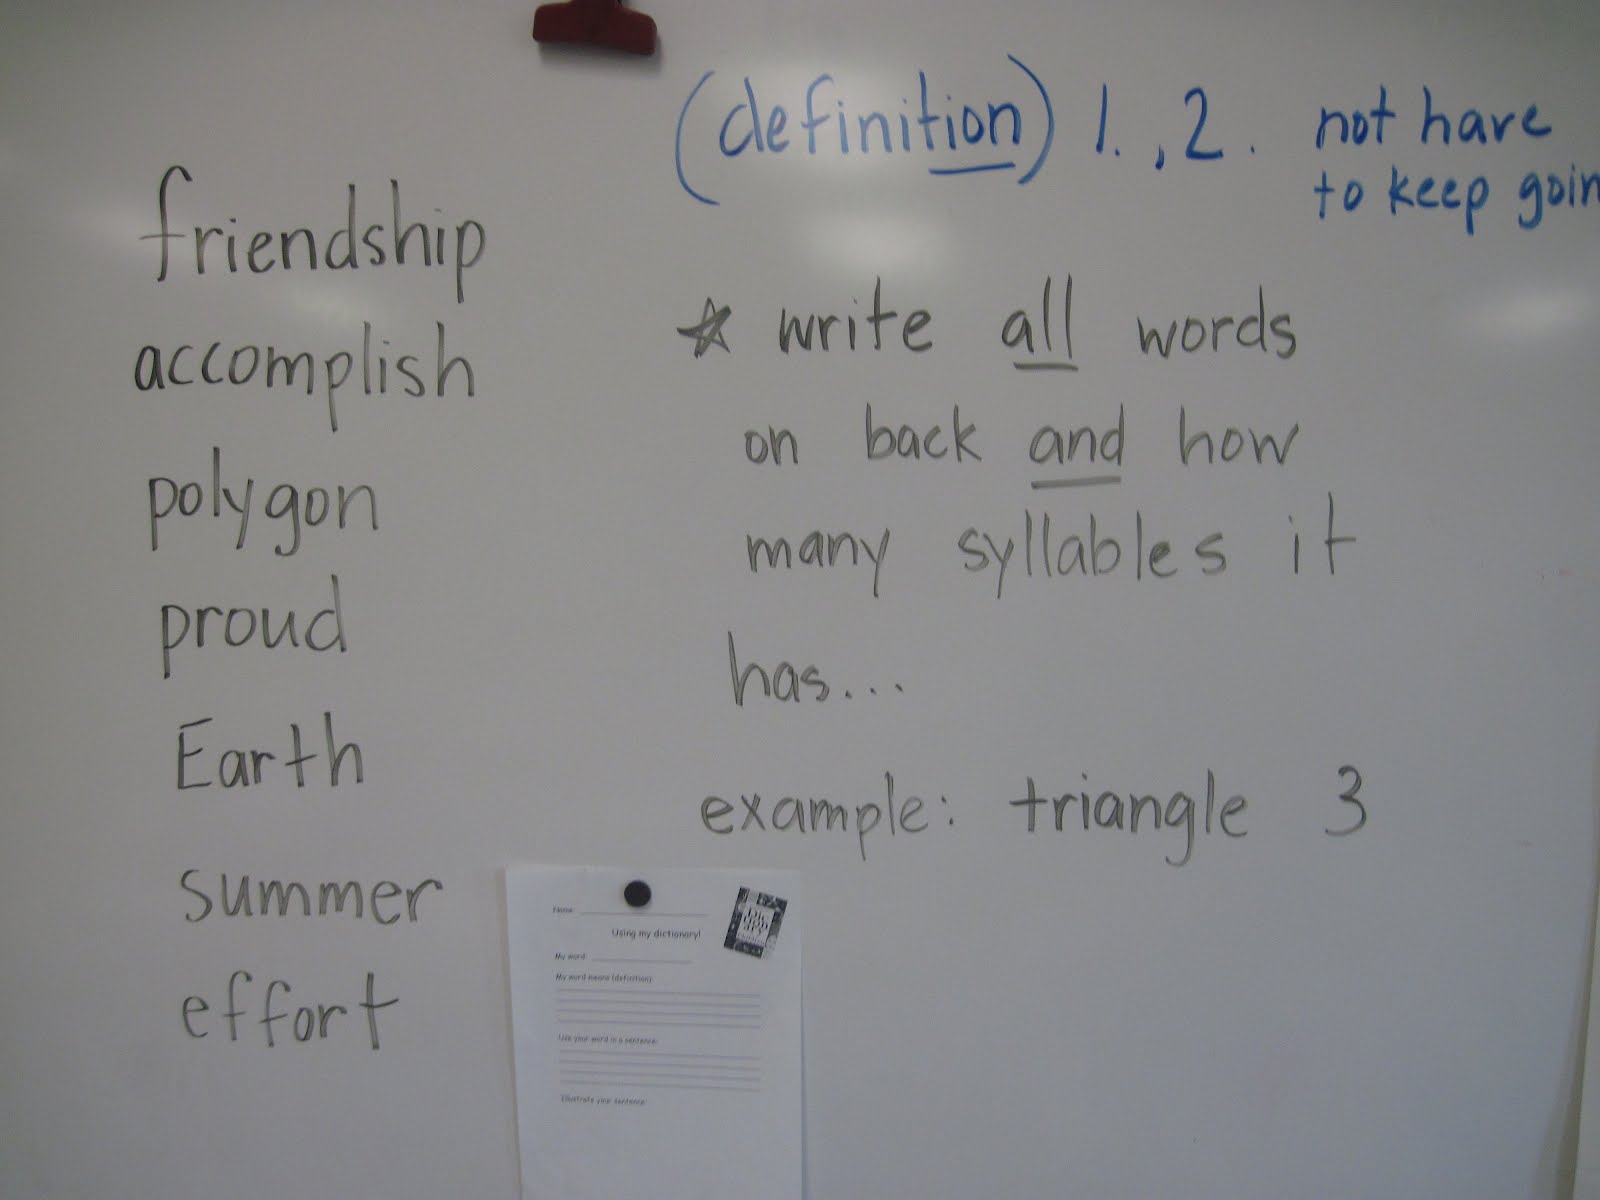 (definition) 1., 2. not have
to keep goin
friendship
accomplish
polygon
proud
Earth
summer
effort
☆ write all words
on back and how
many syllables it
has...
example: triangle 3
Name:
Using my dictionary!
My word
My word means (definition):
Use your word in a sentence:
Illustrate your sentence: